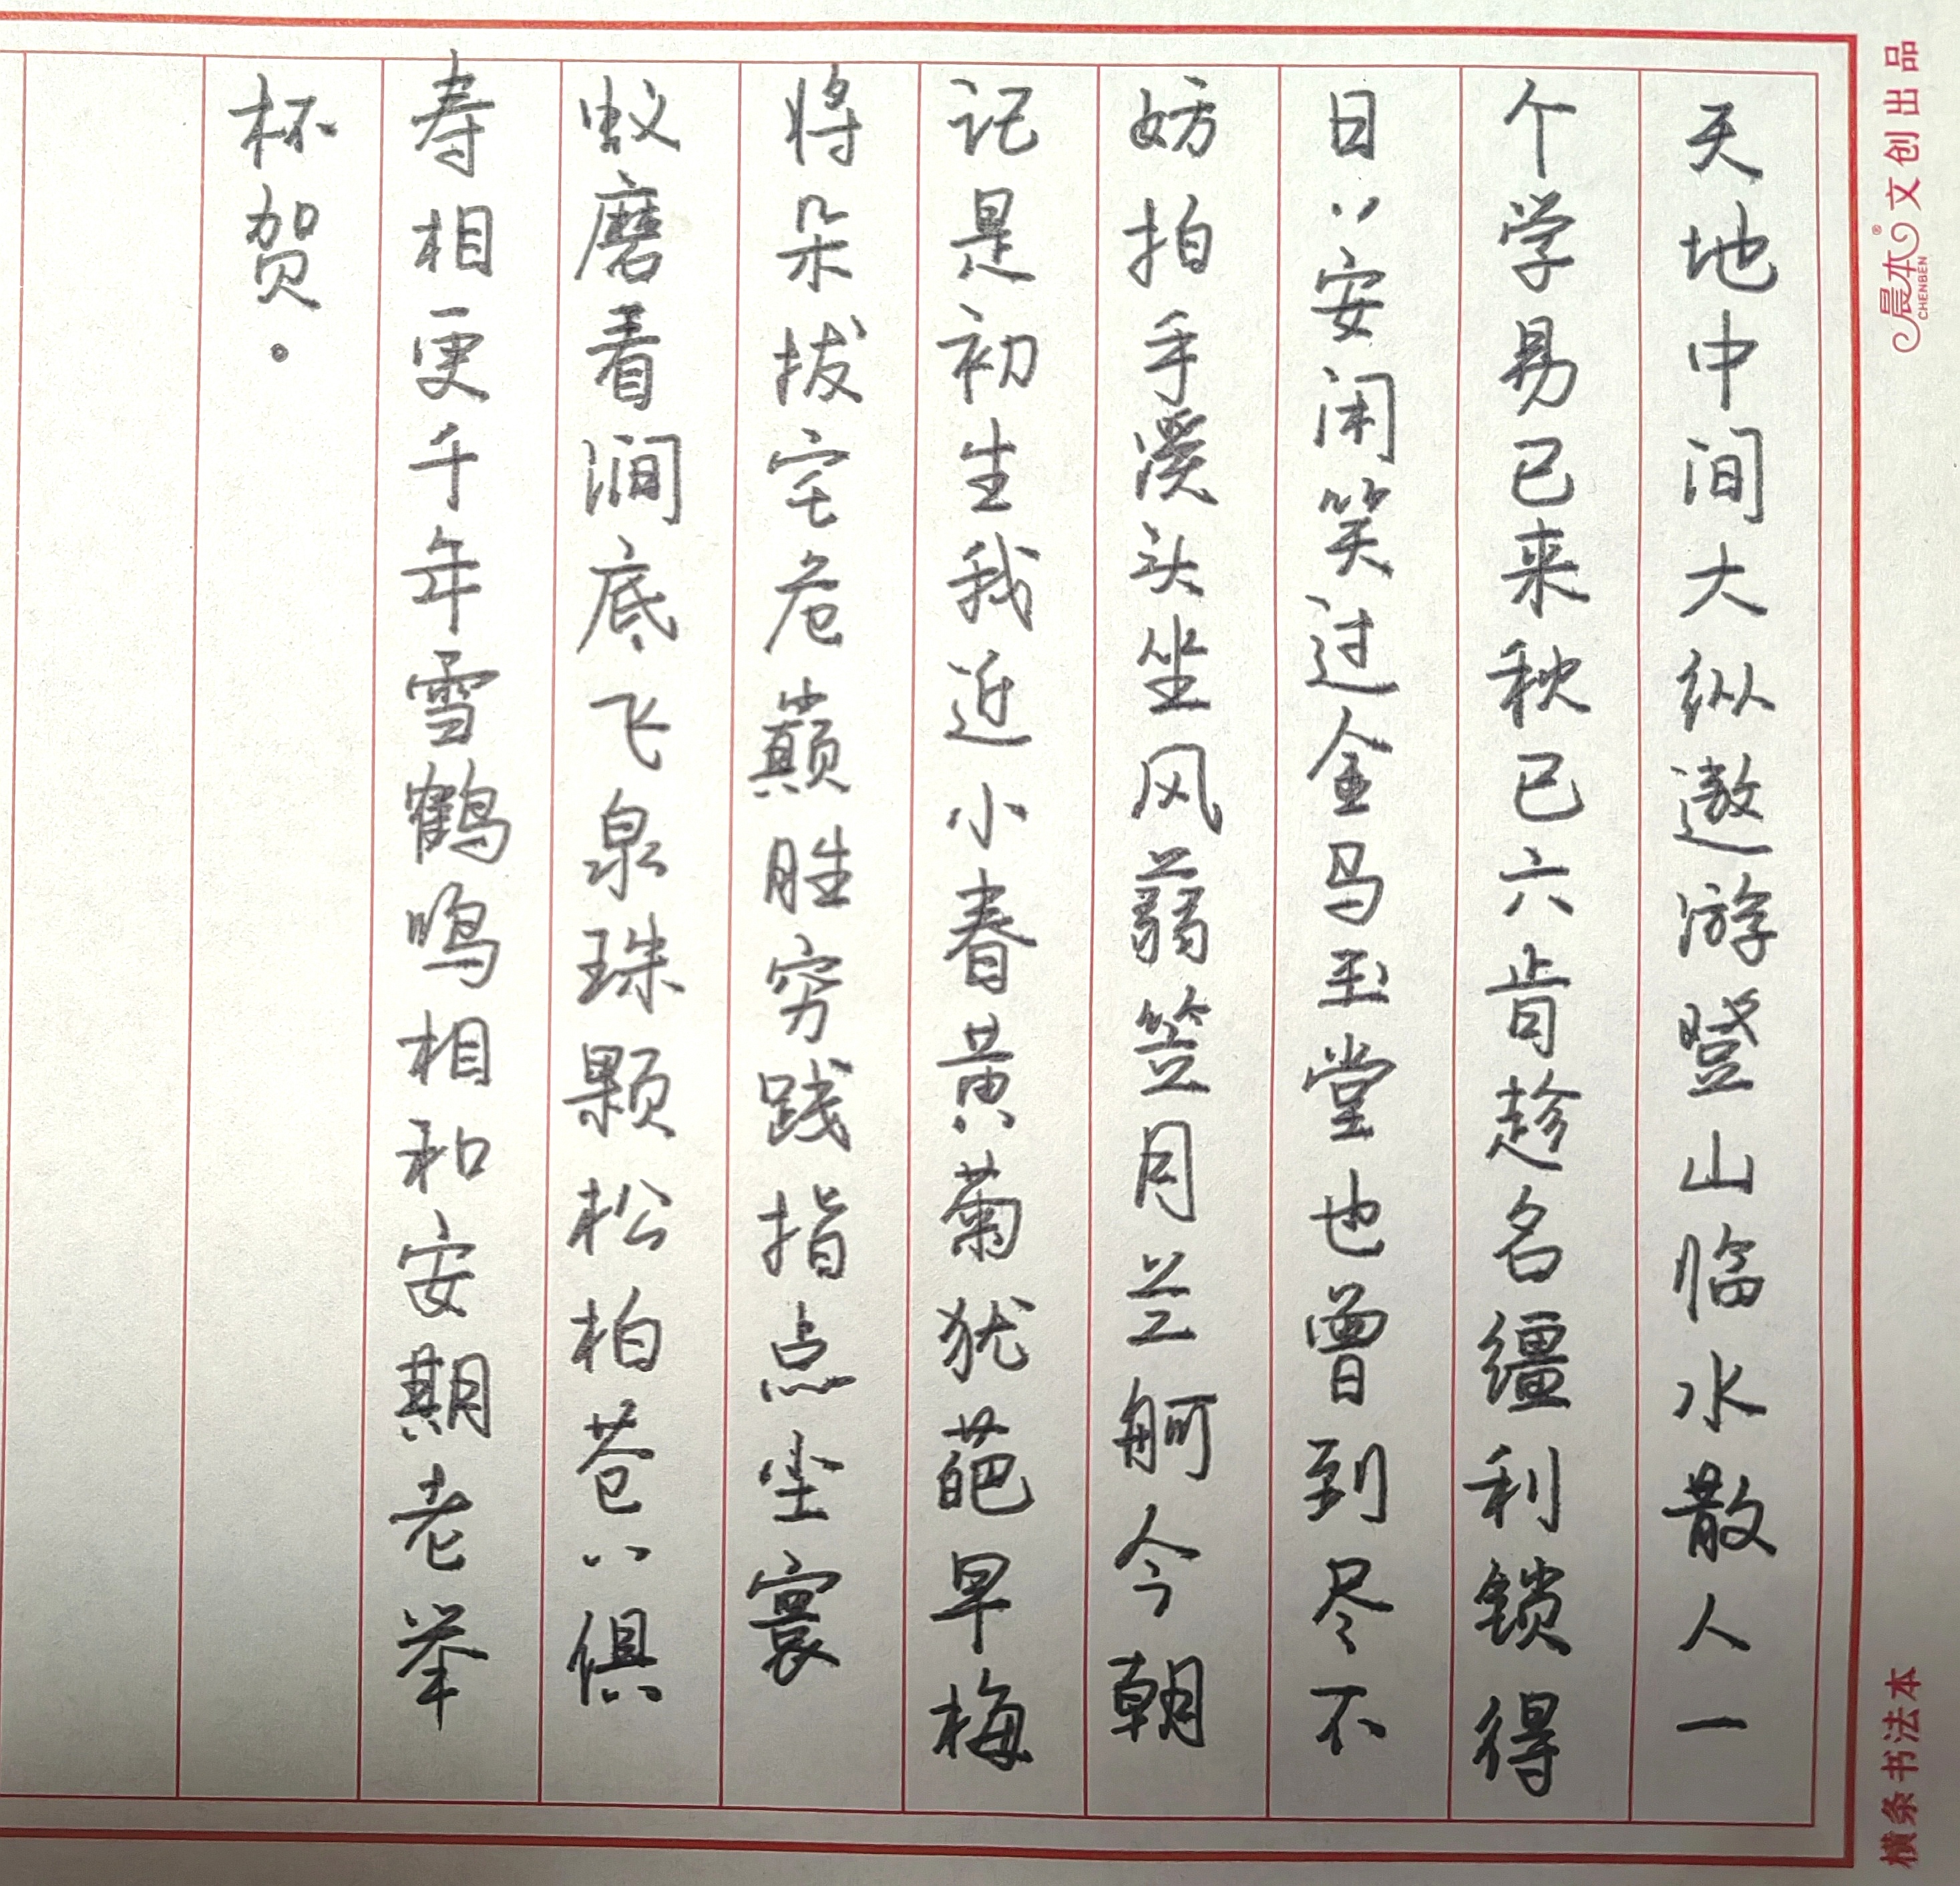 天地中间大纵遨游登山临水散人一
个学易已来秋已六肯趁名缰利锁得
日〻安闲笑过金马玉堂也曾到尽不
妨拍手溪头坐风蒻笠月兰舸今朝
记是初生我近小春黄菊犹葩早梅
将朵拔宅危巅胜穷践指点尘寰
蚁磨看涧底飞泉珠颗松柏苍〻俱
寿相更千年雪鹤鸣相和安期老举
杯贺。
晨本® 文创出品
CHENBEN
横条书法本